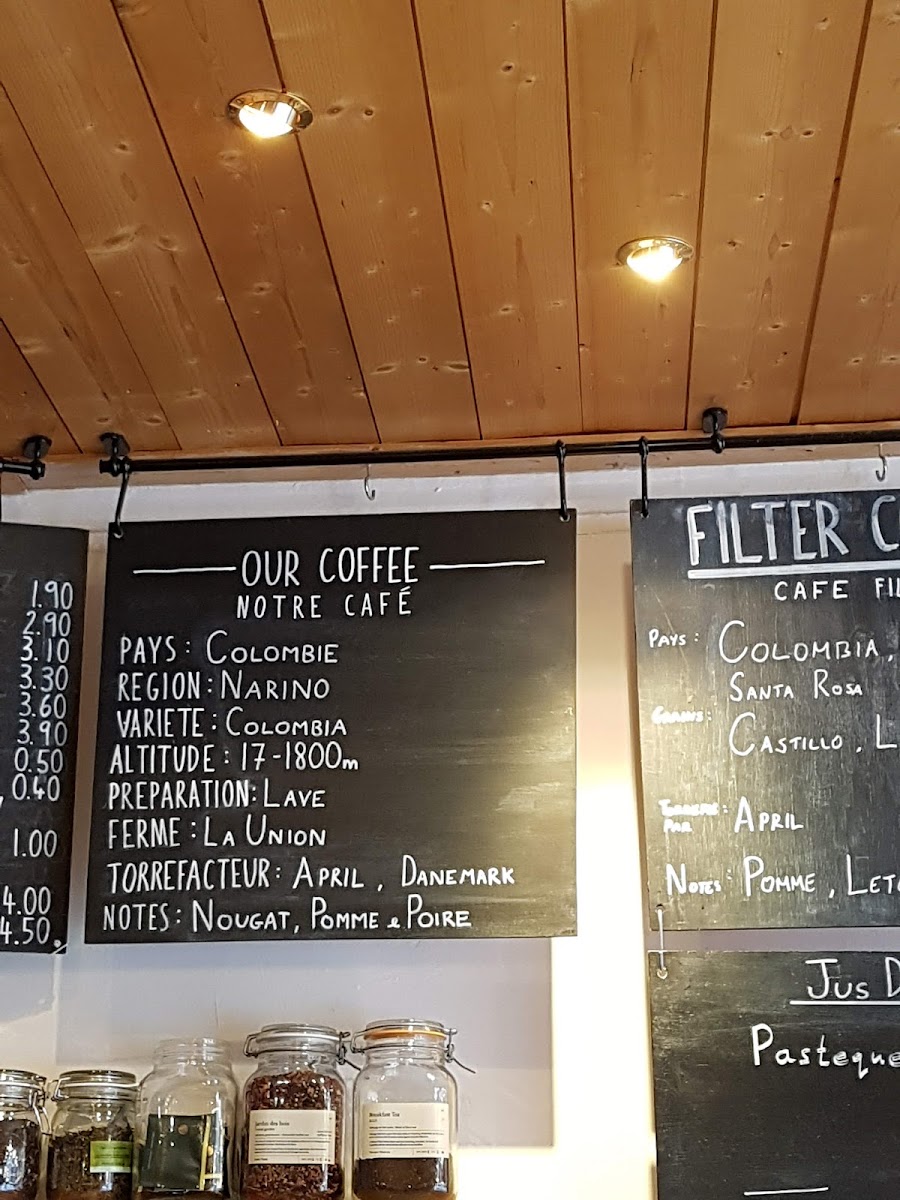 1.90
2.90
3.10
3.30
3.60
3.90
0.50
0.40
1.00
4.00
4.50
OUR COFFEE
NOTRE CAFÉ
PAYS: COLOMBIE
REGION: NARINO
VARIETE: COLOMBIA
ALTITUDE: 17-1800m
PREPARATION: LAVE
FERME: LA UNION
TORREFACTEUR: APRIL, DANEMARK
NOTES: NOUGAT, POMME & POIRE
FILTER C
CAFE FIL
PAYS: COLOMBIA,
SANTA ROSA
GRAINS:
CASTILLO, L
PAR APRIL
NOTES: POMME, LETC
Jus D
Pasteque
Jardin des bois
Breakfast Tea